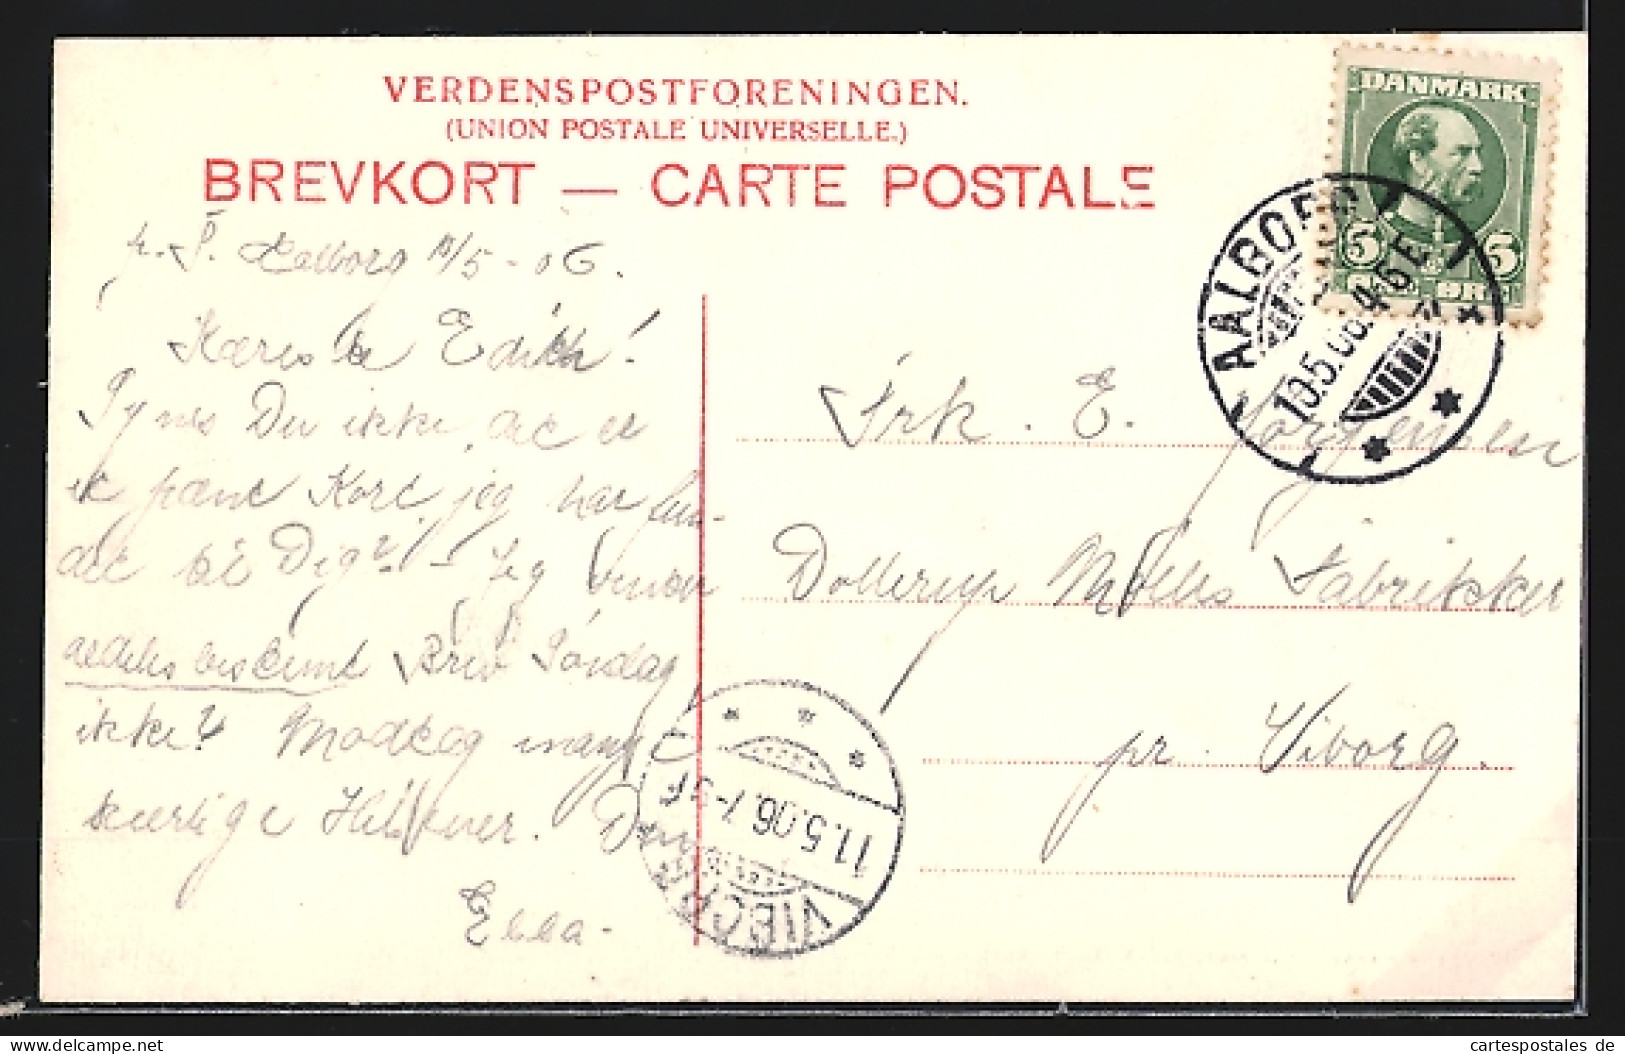 VERDENSPOSTFORENINGEN.
(UNION POSTALE UNIVERSELLE.)
BREVKORT — CARTE POSTALE
p. T. Aalborg 10/5 - 06.
Kæreste Edith!
Synes Du ikke, det er
et pænt Kort, jeg har fun-
det til Dig? - Jeg venter
aldeles bestemt Brev Søndag
ikke? Modtag mange
kærlige Hilsner. Din
Ebba -
DANMARK
5 5
ØRE
AALBORG
10.5.06. 4-6 E
Frk. E. Jørgensen
Dollerup Mølles Fabrikker
pr. Viborg.
11.5.06. 7-9 F
VIBORG
cartespostales.de